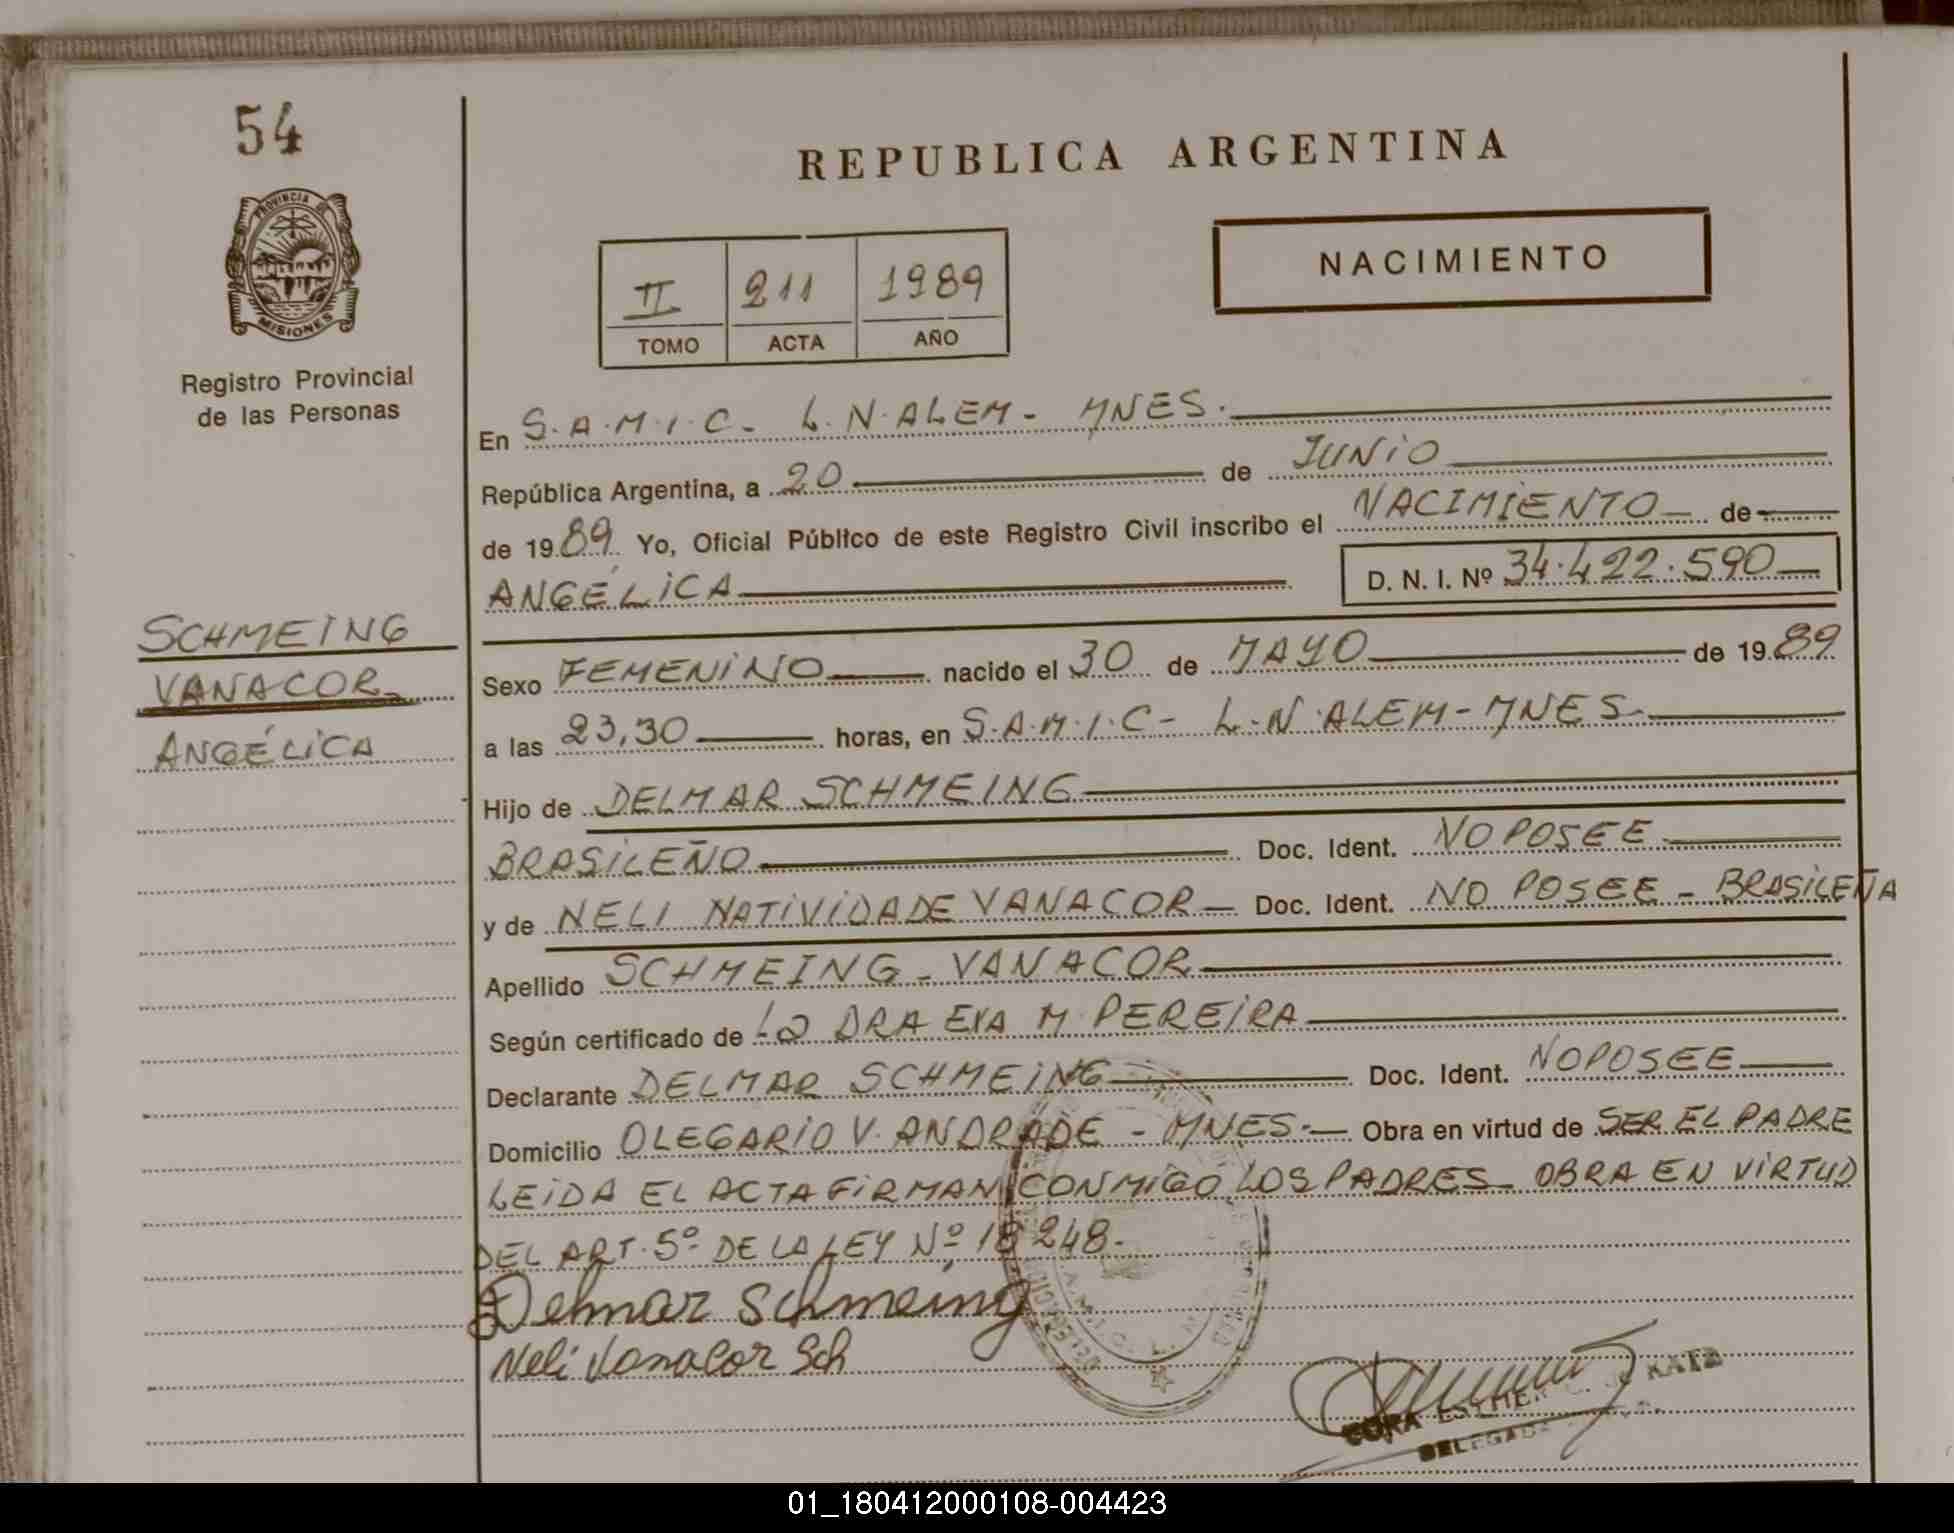 54
REPUBLICA ARGENTINA
NACIMIENTO
PROVINCIA DE
MISIONES
II 211 1989
TOMO ACTA AÑO
Registro Provincial
de las Personas
En S.A.M.I.C- L.N.ALEM- MNES.
República Argentina, a 20 de JUNIO
de 1989 Yo, Oficial Público de este Registro Civil inscribo el NACIMIENTO de
ANGÉLICA D. N. I. Nº 34.422.590
SCHMEING
VANACOR
ANGÉLICA
Sexo FEMENINO nacido el 30 de MAYO de 1989
a las 23,30 horas, en S.A.M.I.C- L.N.ALEM-MNES-
Hijo de DELMAR SCHMEING
BRASILEÑO Doc. Ident. NO POSEE
y de NELI NATIVIDADE VANACOR Doc. Ident. NO POSEE - BRASILEÑA
Apellido SCHMEING - VANACOR
Según certificado de La DRA EVA M. PEREIRA
Declarante DELMAR SCHMEING Doc. Ident. NO POSEE
Domicilio OLEGARIO V. ANDRADE - MNES.- Obra en virtud de SER EL PADRE
LEIDA EL ACTA FIRMAN CONMIGO LOS PADRES OBRA EN VIRTUD
DEL ART. 5º DE LA LEY Nº 18248.-
Delmar Schmeing
Neli Vanacor Sch
CORA ESTHER KATZ
DELEGADA
01_180412000108-004423